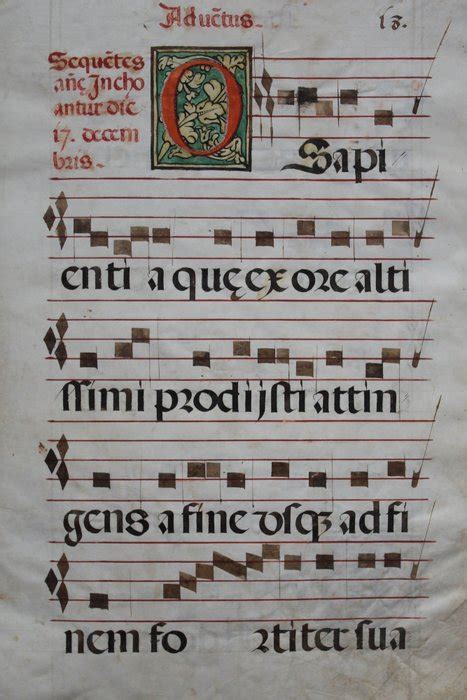 Aduẽtus. 13.
Sequẽtes
añe Incho
antur die
17. decem
bris.
O Sapi
enti a que ex ore alti
ssimi prodijsti attin
gens a fine vsqȝ ad fi
nem fo rtiter sua